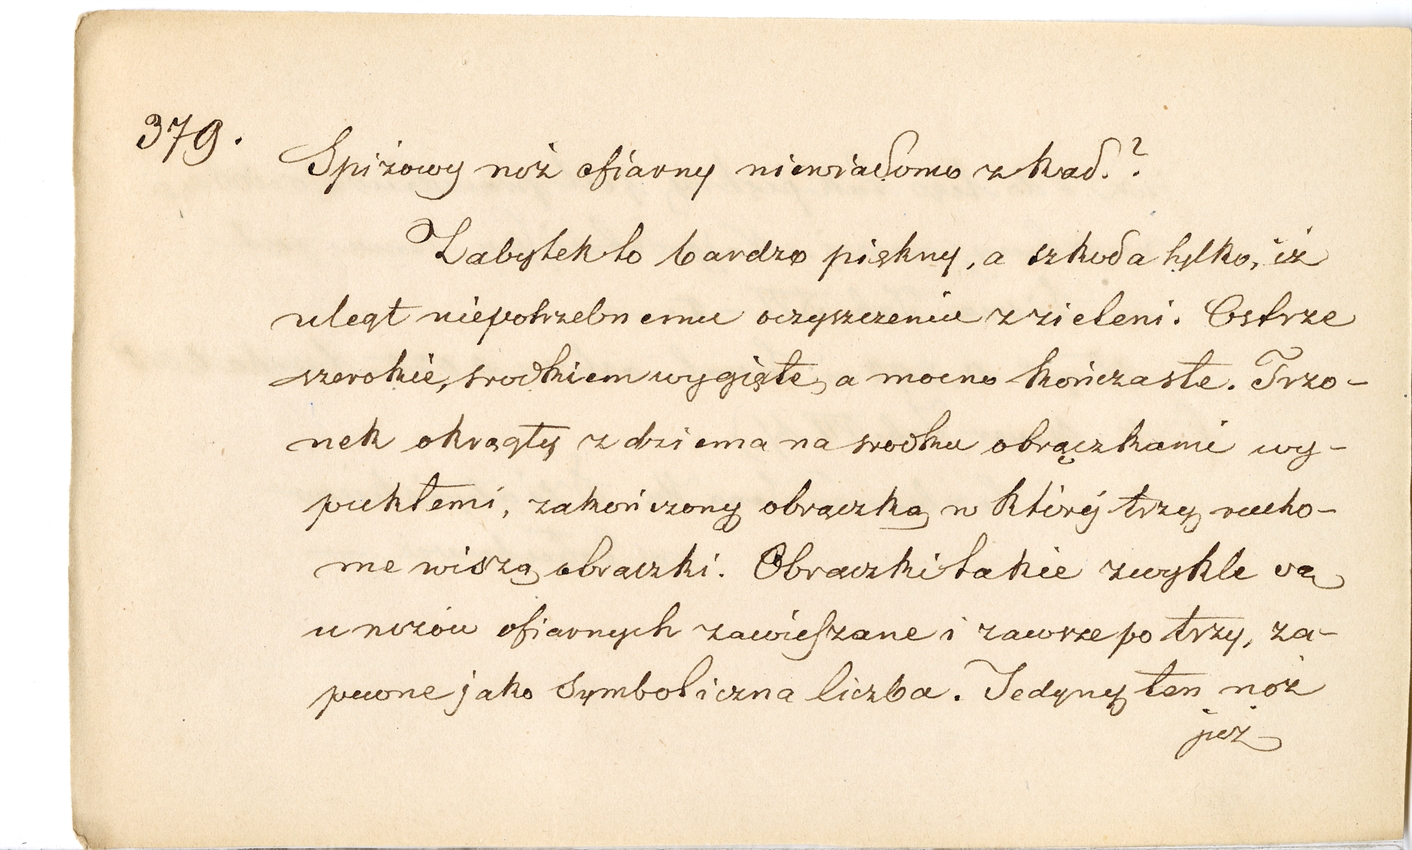 379.
Spiżowy nóż ofiarny niewiadomo z kąd.?
Zabytek to bardzo piękny, a szkoda tylko, iż
uległ niepotrzebnemu oczyszczeniu z zieleni. Ostrze
szerokie, srodkiem wygięte, a mocno kończaste. Trzo-
nek okrągły z dwiema na srodku obrączkami wy-
pukłemi, zakończony obrączką w której trzy rucho-
me wiszą obraczki. Obraczki takie zwykle są
u nozów ofiarnych zawieszane i zawsze po trzy, za-
pewne jako symboliczna liczba. Jedyny ten nóż
już